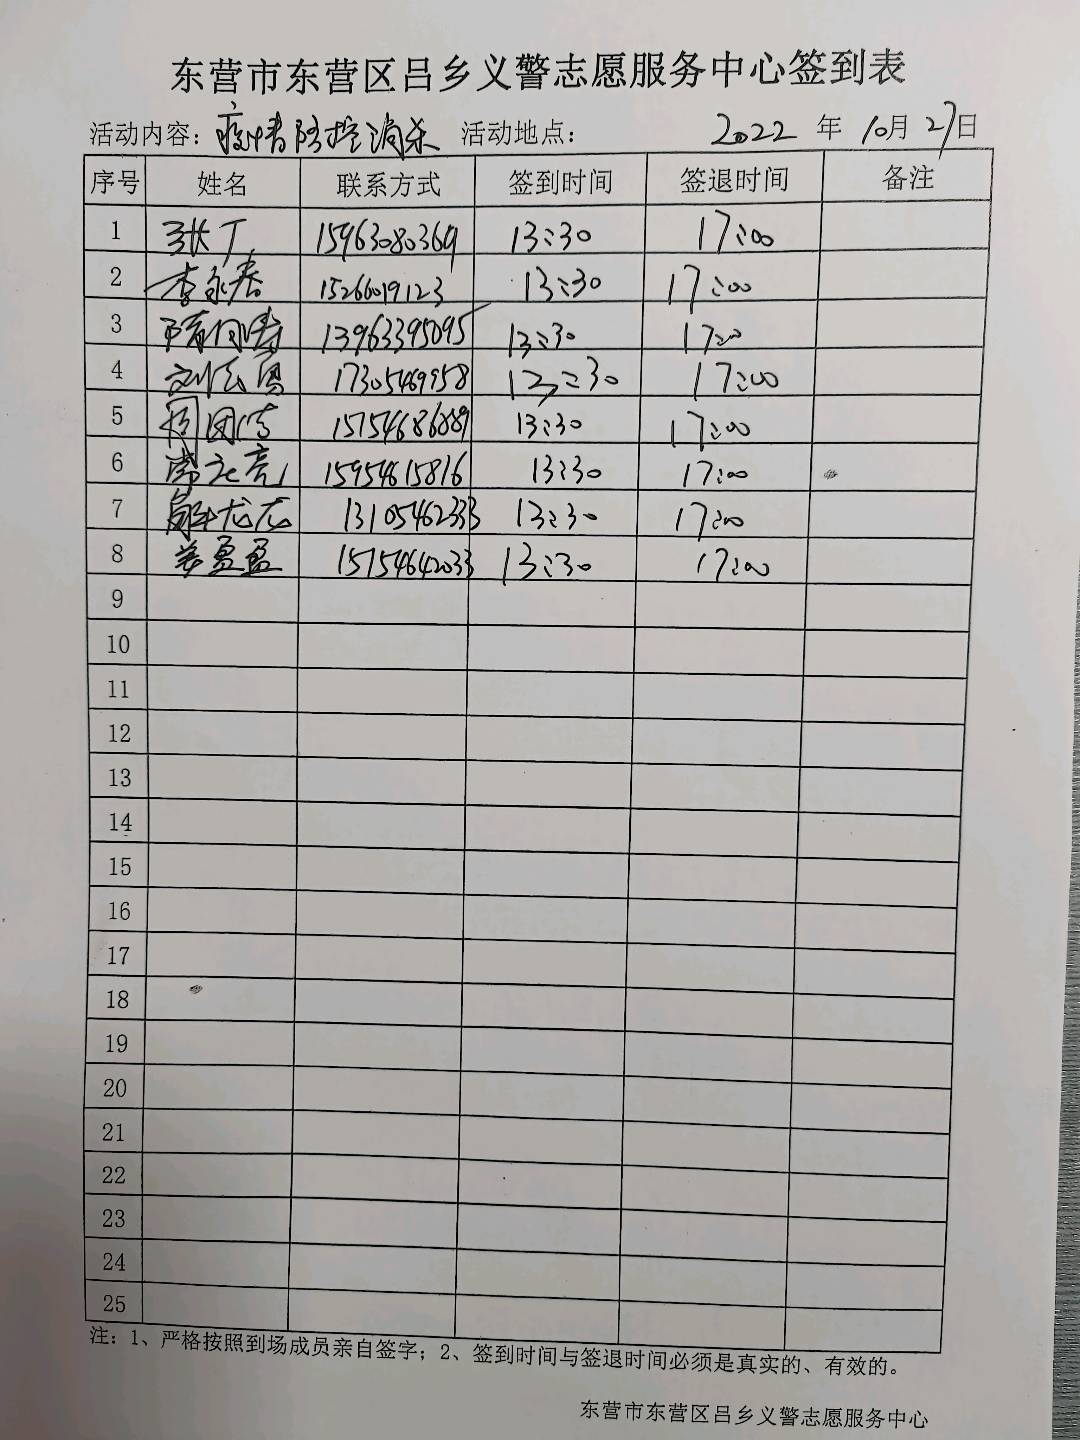 东营市东营区吕乡义警志愿服务中心签到表
活动内容：疫情防控消杀 活动地点： 2022 年 10月 27日
序号 姓名 联系方式 签到时间 签退时间 备注
1 张丁 15963080369 13:30 17:00
2 李永春 15266019123 13:30 17:00
3 13963395095 13:30 17:00
4 17305469958 13:30 17:00
5 15754686889 13:30 17:00
6 15954615816 13:30 17:00
7 龙龙 13105462333 13:30 17:00
8 姜盈盈 15154642033 13:30 17:00
9
10
11
12
13
14
15
16
17
18
19
20
21
22
23
24
25
注：1、严格按照到场成员亲自签字；2、签到时间与签退时间必须是真实的、有效的。
东营市东营区吕乡义警志愿服务中心